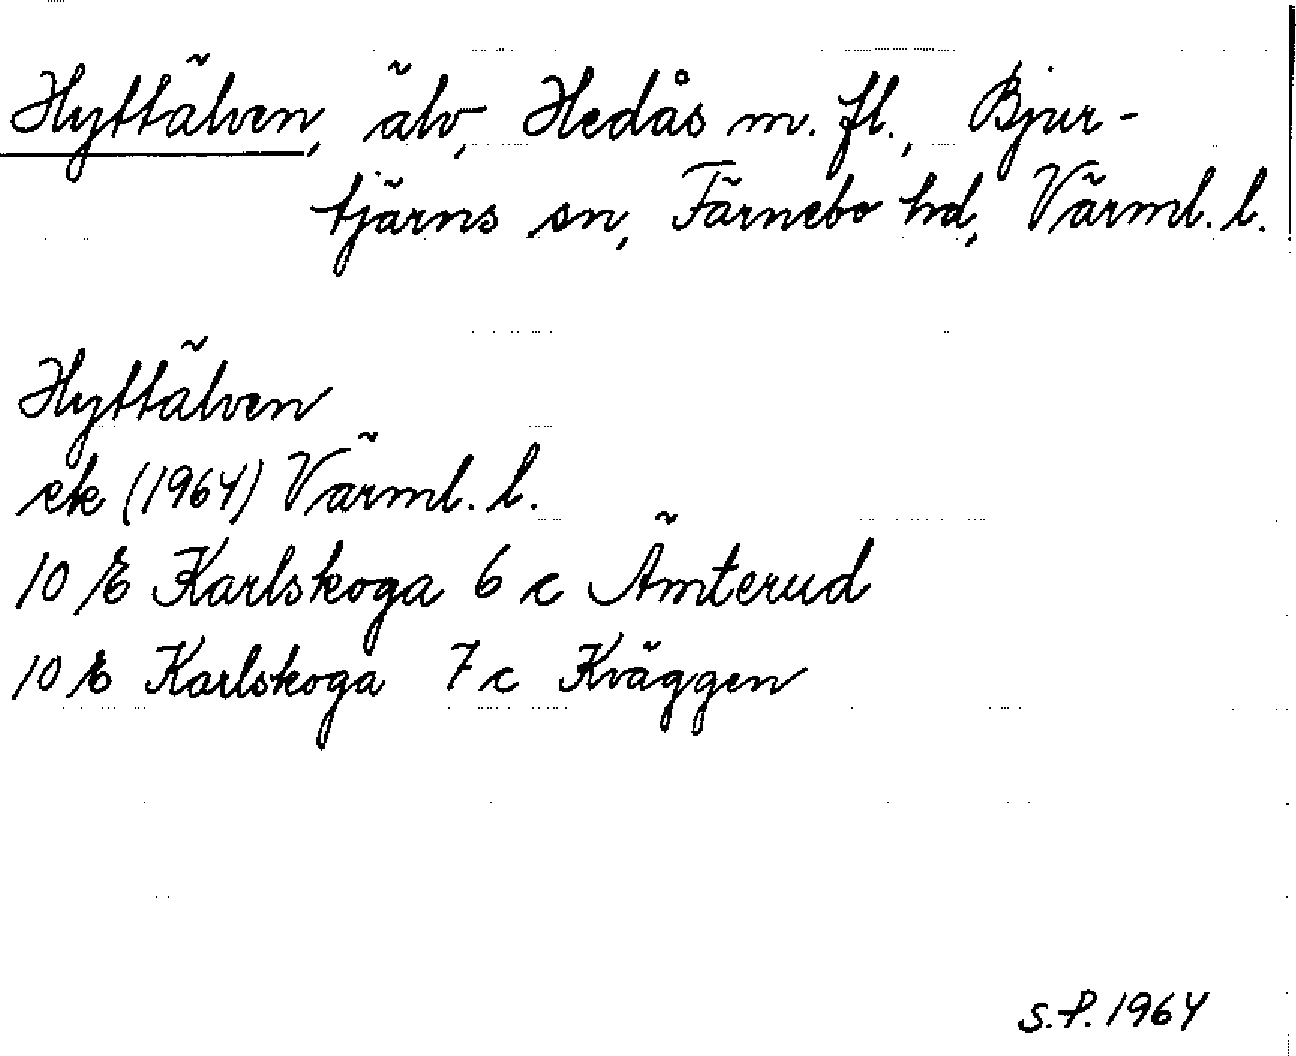 Hyttälven, älv, Hedås m. fl., Bjur-
tjärns sn, Färnebo hd, Värml. l.
Hyttälven
ek (1964) Värml. l.
10 E Karlskoga 6 c Ämterud
10 E Karlskoga 7 c Kväggen
S.P. 1964